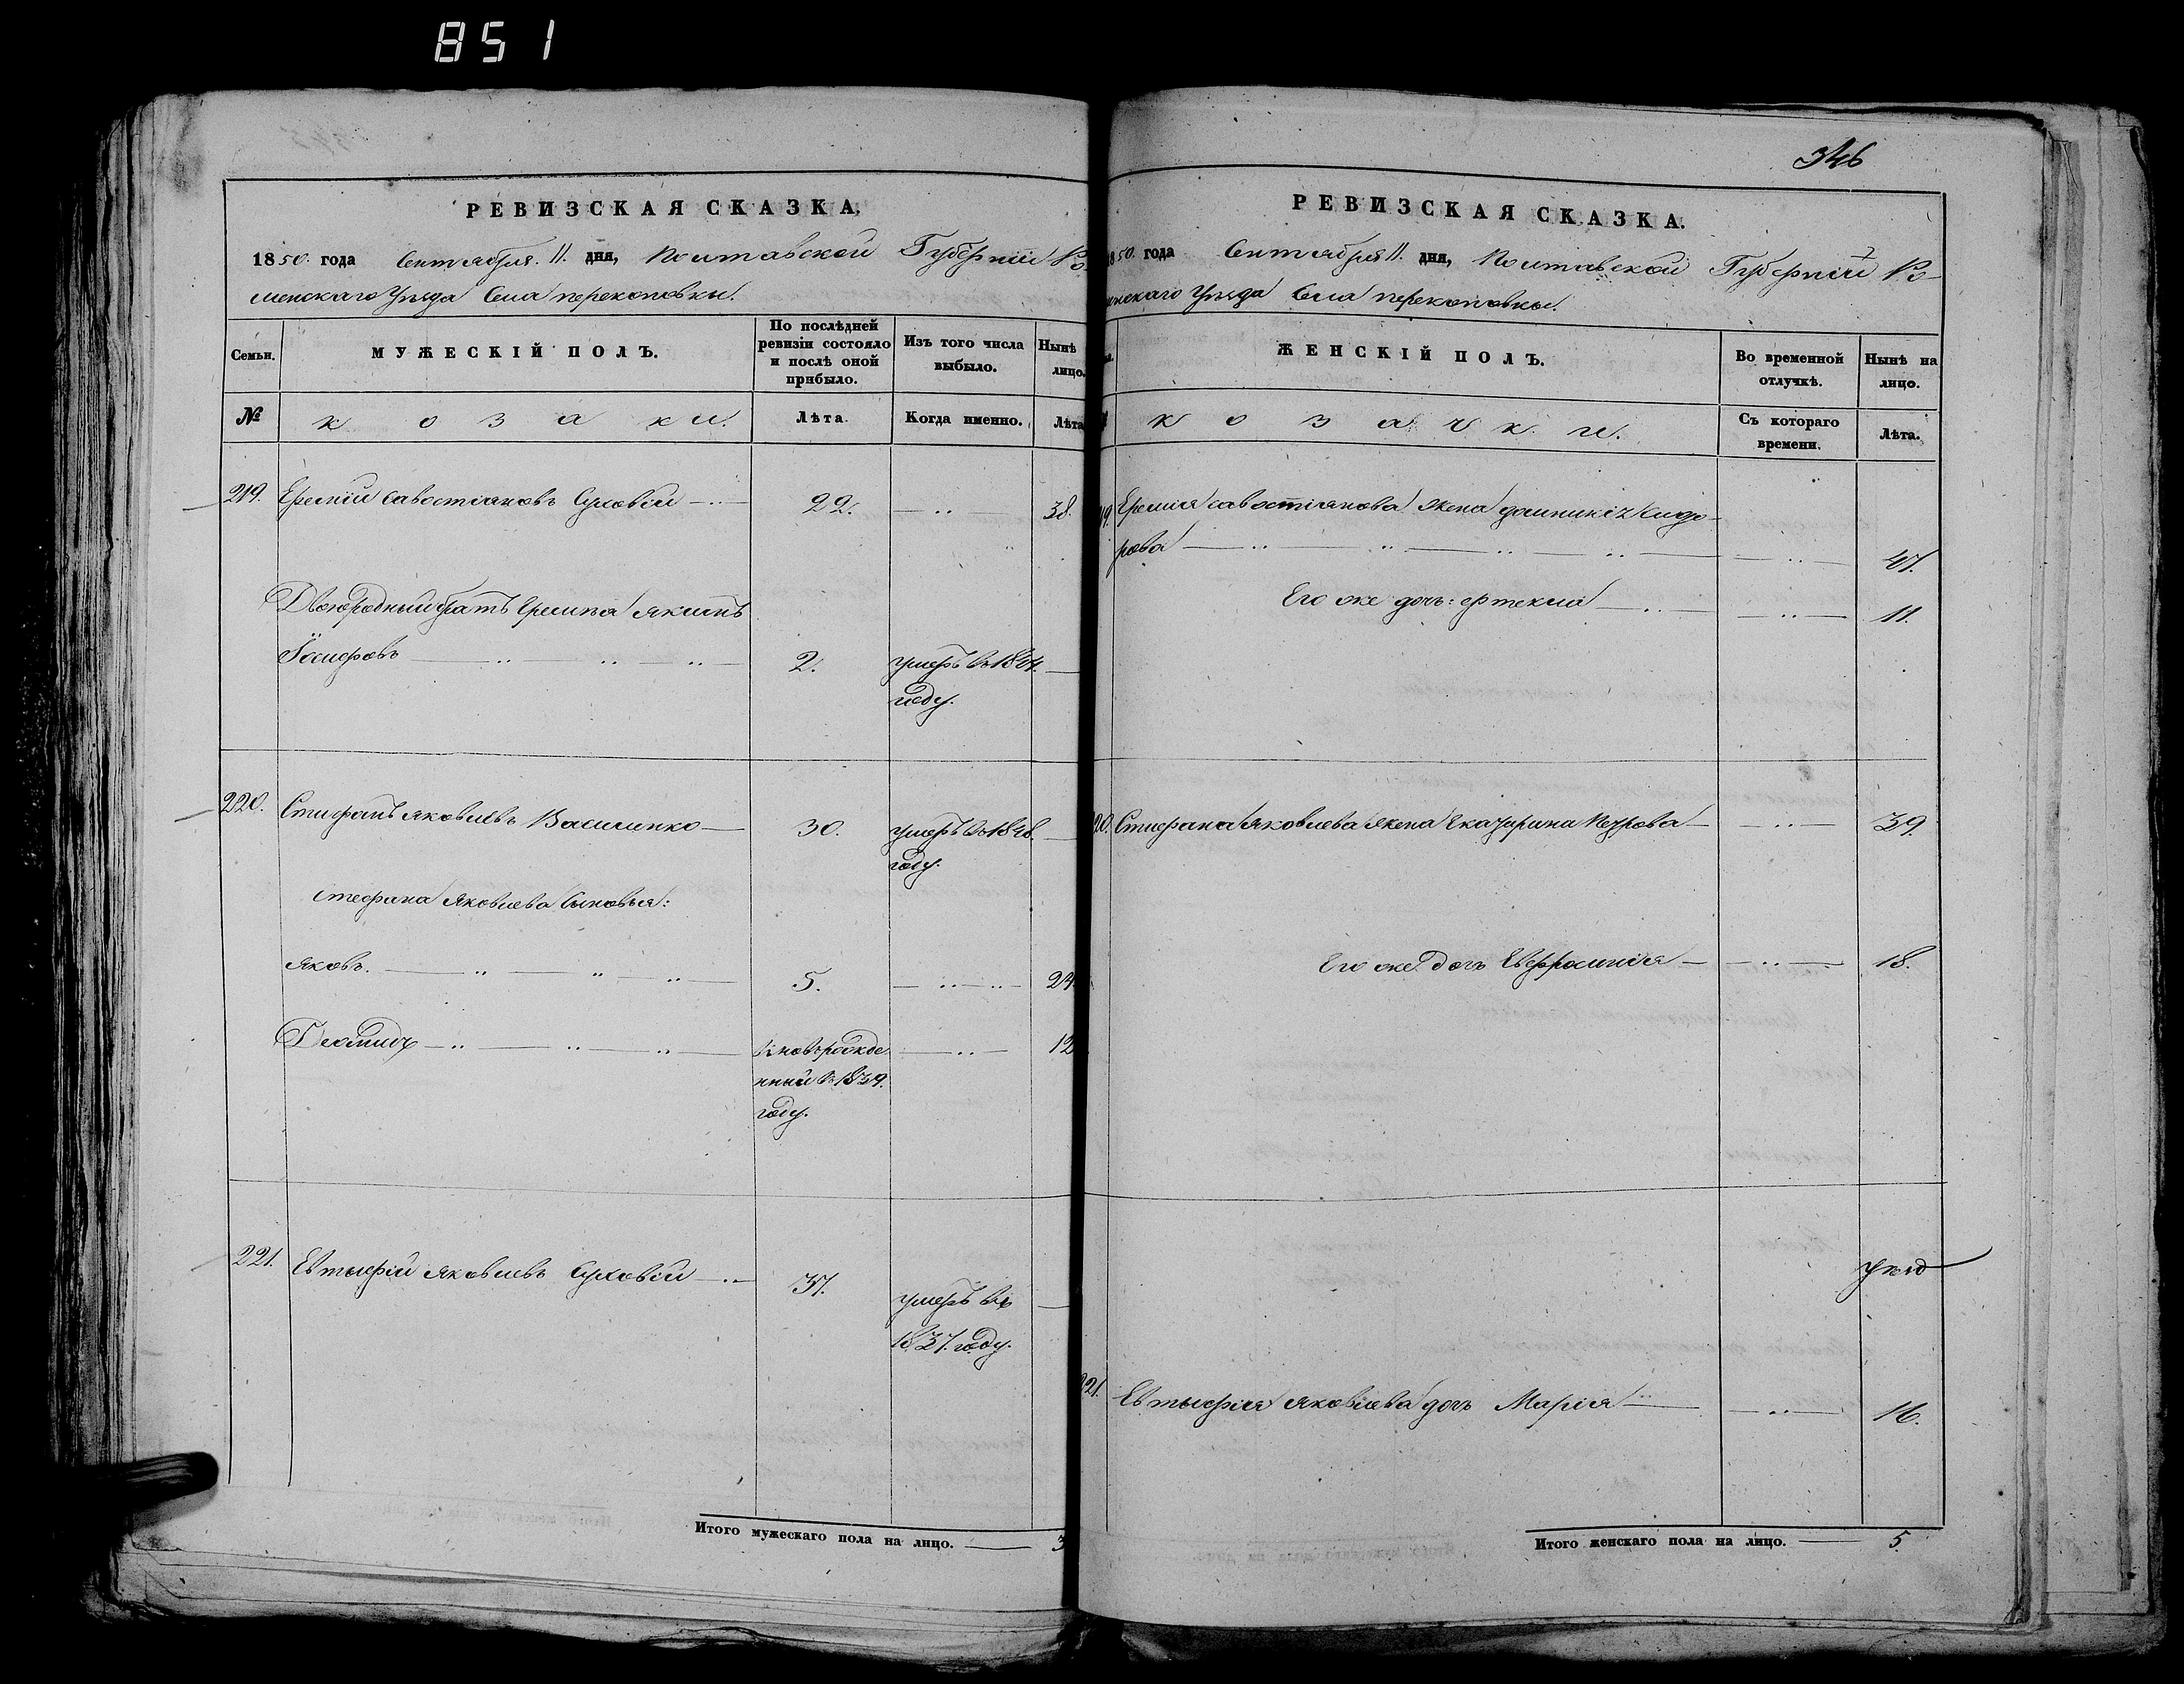 851
РЕВИЗСКАЯ СКАЗКА.
1850 года Сентября 11 дня, Полтавской Губерніи Ро-
менскаго Уѣзда Села перекоповки.
Семьи.
МУЖЕСКІЙ ПОЛЪ.
По послѣдней
ревизіи состояло
и послѣ оной
прибыло.
Изъ того числа
выбыло.
Нынѣ
лицо.
№
козаки.
Лѣта.
Когда именно.
Лѣта
219. Еремій Савостіановъ Суховій 22. 38.
Двоюродный братъ Еремѣя Якимъ
2. умеръ въ
году.
220. Стефанъ Яковлевъ Василенко 30. умеръ въ 1848.
году.
Стефана Яковлева Сыновья:
Яковъ. 5. 24
Діомидъ вновьрожде
12
нный въ 1839.
году.
221. Евтыфій Яковлевъ Суховій 37.
умеръ въ
1837. году.
Итого мужескаго пола на лицо. 3
346
РЕВИЗСКАЯ СКАЗКА.
1850 года Сентября 11. дня, Полтавской Губерніи Ро-
менскаго Уѣзда Села перекоповки.
ЖЕНСКІЙ ПОЛЪ.
Во временной
отлучкѣ.
Нынѣ на
лицо.
козачки.
Съ котораго
времени.
Лѣта.
19. Еремія Савостіанова жена домникія Сидо-
рова 47.
Его же дочь: 11.
20. Стефана Яковлева жена Екатерина Петрова 39.
Его же дочь Евфросинія 18.
221. Евтыфія Яковлева дочь Марія 16.
Итого женскаго пола на лицо. 5.